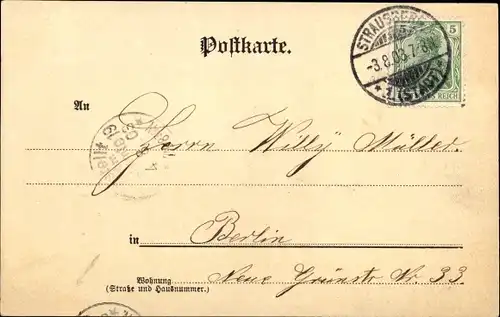 Postkarte.
STRAUSBERG
-3.8.03.7-8N.
* 1 (STADT) *
5
REICH
An
Herrn Willy Müller.
in Berlin
Wohnung
(Straße und Hausnummer.)
Neue Grünstr Nr. 33